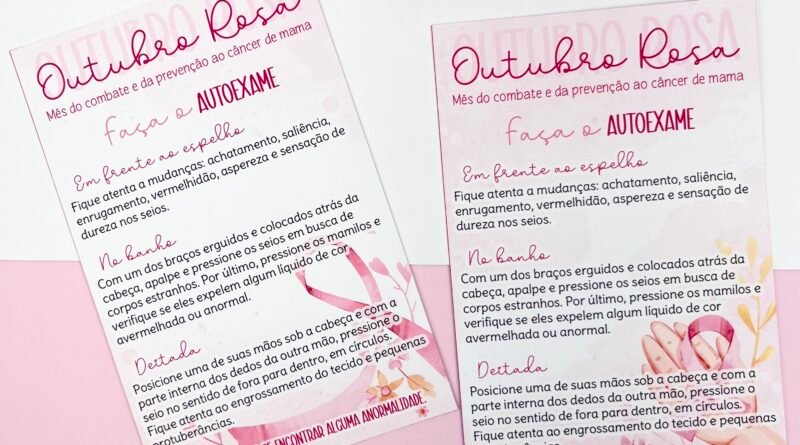 OUTUBRO ROSA
Outubro Rosa
Mês do combate e da prevenção ao câncer de mama
Faça o AUTOEXAME
Em frente ao espelho
Fique atenta a mudanças: achatamento, saliência,
enrugamento, vermelhidão, aspereza e sensação de
dureza nos seios.
No banho
Com um dos braços erguidos e colocados atrás da
cabeça, apalpe e pressione os seios em busca de
corpos estranhos. Por último, pressione os mamilos e
verifique se eles expelem algum líquido de cor
avermelhada ou anormal.
Deitada
Posicione uma de suas mãos sob a cabeça e com a
parte interna dos dedos da outra mão, pressione o
seio no sentido de fora para dentro, em círculos.
Fique atenta ao engrossamento do tecido e pequenas
protuberâncias.
ENCONTRAR ALGUMA ANORMALIDADE.
OUTUBRO ROSA
Outubro Rosa
Mês do combate e da prevenção ao câncer de mama
Faça o AUTOEXAME
Em frente ao espelho
Fique atenta a mudanças: achatamento, saliência,
enrugamento, vermelhidão, aspereza e sensação de
dureza nos seios.
No banho
Com um dos braços erguidos e colocados atrás da
cabeça, apalpe e pressione os seios em busca de
corpos estranhos. Por último, pressione os mamilos e
verifique se eles expelem algum líquido de cor
avermelhada ou anormal.
Deitada
Posicione uma de suas mãos sob a cabeça e com a
parte interna dos dedos da outra mão, pressione o
seio no sentido de fora para dentro, em círculos.
Fique atenta ao engrossamento do tecido e pequenas
protuberâncias.